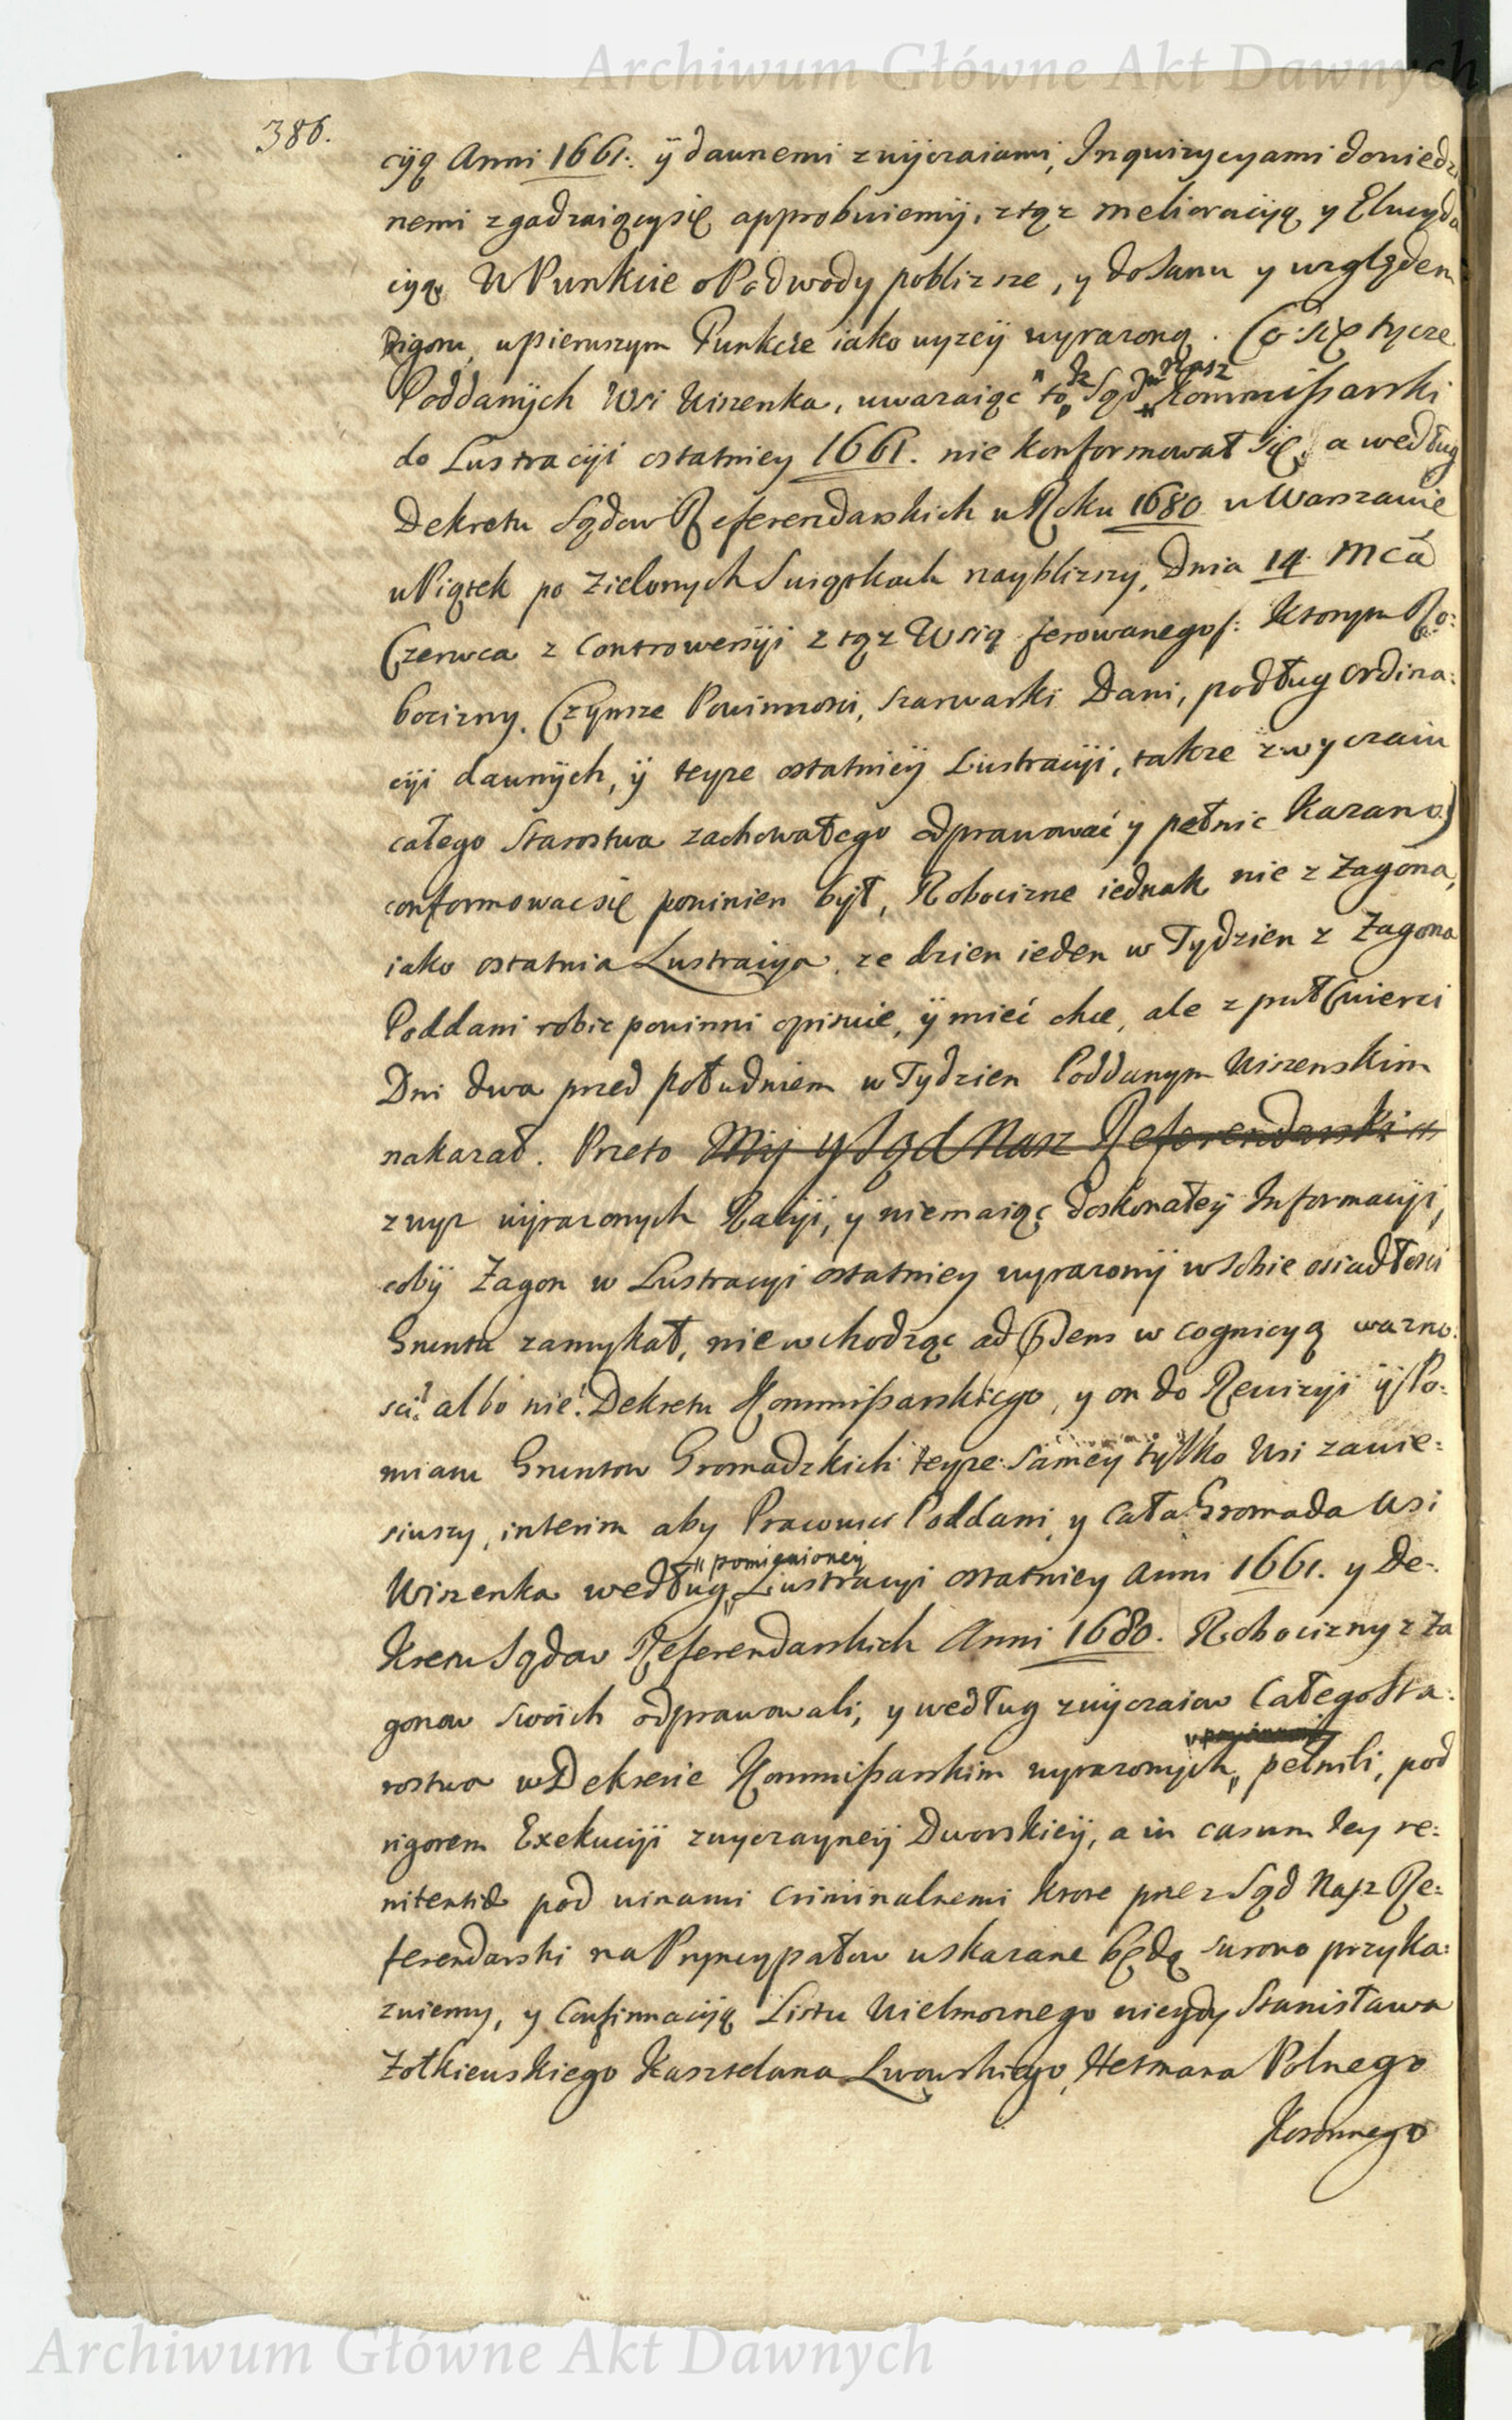 Archiwum Główne Akt Dawnych
386.
cyją Anni 1661. ÿ dawnemi zwyczaiami, Inquizycyami dowiedzi
nemi zgadzaiącysię approbuiemÿ, ztąż melioracyją y Elucyda
cyją, W Punkcie o Podwody poblizsze, y do Sanu y względem
Rigoru, w pierwszym Punkcie iako wyzeÿ wyrazoną. Co się tycze
Poddanÿch Wsi Wiszenka, uwazaiąc to, że Sąd Nasz Kommissarski
do Lustracÿi ostatniey 1661. nie konformował się, a według
Dekretu Sądow Referendarskich w Roku 1680 w Warszawie
w Piątek po Zielonych Swiątkach nayblizszy, Dnia 14. Mca
Czerwca z Controwersÿi z tąż Wsią ferowanego /: Ktorym Ro:
bocizny, Czynsze Powinnosci, Szarwarki Dani, podług Ordina:
cÿi dawnÿch, ÿ teyze ostatnieÿ Lustracÿi, takze zwyczaiu
całego Starostwa zachowałego odprawować y pełnic Kazano)
conformowac się powinien bÿł, Robocizne iednak nie z Zagona,
iako ostatnia Lustracyja, ze dzien ieden w Tydzien z Zagona
Poddani robic powinni opisuie, ÿ mieć chce, ale z puł Cwierci
Dni dwa przed południem w Tydzien Poddanym Wiszenskim
nakazał. Przeto Mÿ y Sąd Nasz Referendarski
z wyz wÿrazonych Racÿi, y niemaiąc doskonałeÿ Informacÿi,
cobÿ Zagon w Lustracyi ostatniey wyrazonÿ w Sobie osiadłosci
Gruntu zamykał, nie wchodząc ad Pdens w cognicyą wazno:
sci? albo nie? Dekretu Kommissarskiego, y on do Rewizÿi ÿ Po:
miaru Gruntow Gromadzkich teyze samey tylko Wsi zawie:
siwszy, interim aby Pracowici Poddani y Cała Gromada Wsi
Wiszenka według pomienioneÿ Lustracyi ostatniey Anni 1661. y De:
kretu Sądow Referendarskich Anni 1680. Robocizny z Za
gonow swoich odprawowali, y według zwÿczaiow Całego Sta:
rostwa w Dekrecie Kommissarskim wyrazonych, pełnili, pod
rigorem Exekucÿi zwyczayneÿ Dworskieÿ, a in casum tey re:
nitentiæ pod winami criminalnemi ktore przez Sąd Nasz Re:
ferendarski na Pryncypałow wskazane będą surowo przyka:
zuiemy, y Confirmacÿją Listu Wielmoznego niegdy Stanisława
Zołkiewskiego Kasztelana Lwowskiego, Hetmana Polnego
Koronnego
Archiwum Główne Akt Dawnych